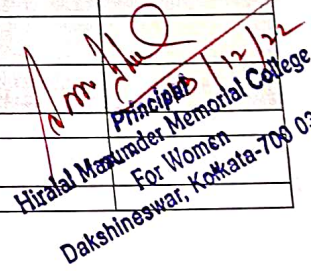 13/12/22
Principal
Hiralal Mazumder Memorial College
For Women
Dakshineswar, Kolkata-700 03